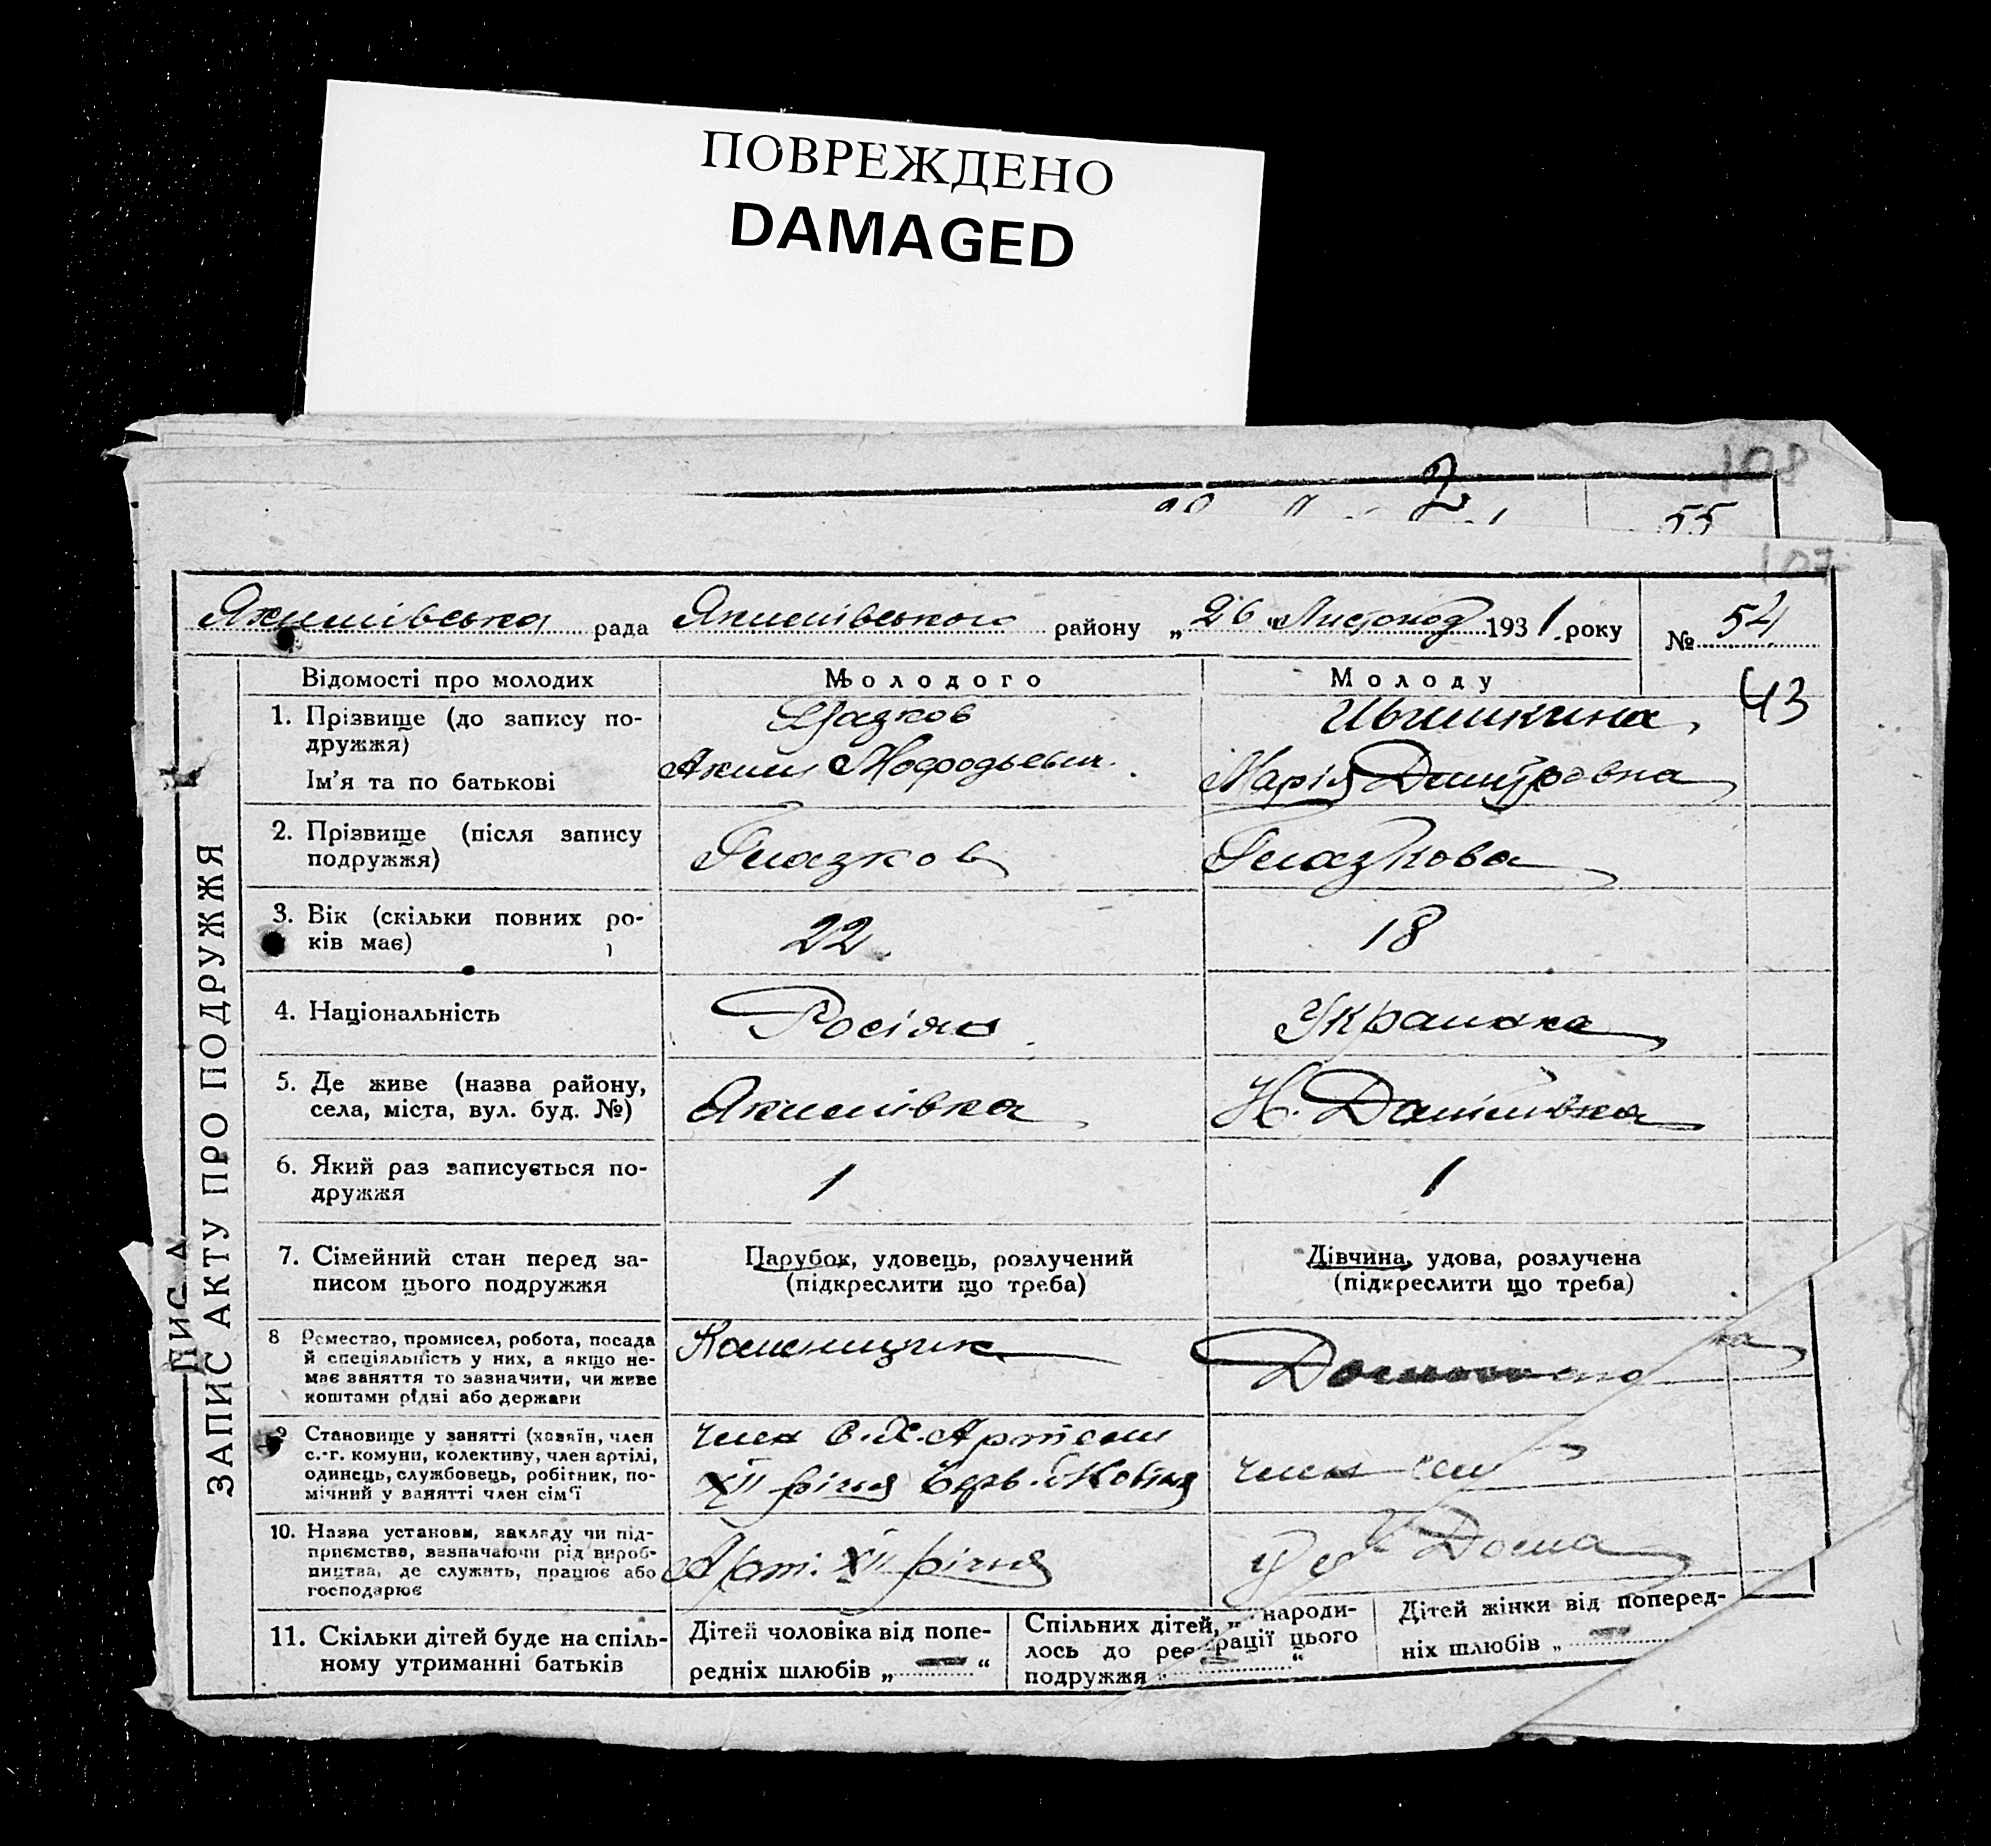 ПОВРЕЖДЕНО
DAMAGED
108
2
55
107
Якимівська рада Якимівського району „26“ Листопад 1931 року № 54
Відомості про молодих
Молодого
Молоду
43
1. Прізвище (до запису по-
дружжя)
Ім'я та по батькові
Глазков
Аким
Марія Дмитровна
2. Прізвище (після запису
подружжя)
Глазков
Глазкова
3. Вік (скільки повних ро-
ків має)
22
18
4. Національність
Росіян
Украинка
5. Де живе (назва району,
села, міста, вул. буд. №)
Якимівка
Н. Данілівка
6. Який раз записується по-
дружжя
1
1
7. Сімейний стан перед за-
писом цього подружжя
Парубок, удовець, розлучений
(підкреслити що треба)
Дівчина, удова, розлучена
(підкреслити що треба)
8 Ремество, промисел, робота, посада
й спеціяльність у них, а якщо не-
має заняття то зазначити, чи живе
коштами рідні або держави
9 Становище у занятті (хазяїн, член
с.-г. комуни, колективу, член артілі,
одинець, службовець, робітник, по-
мічний у занятті член сім'ї
член С.Х. Артели
XII річчя Черв.
член
10. Назва установи, закладу чи під-
приємства, зазначаючи рід вироб-
ництва, де служить, працює або
господарює
Арт. XII річчя
Дома
11. Скільки дітей буде на спіль-
ному утриманні батьків
Дітей чоловіка від попе-
редніх шлюбів „ — “
Спільних дітей, народи-
лось до реєстрації цього
подружжя „ “
Дітей жінки від поперед-
ніх шлюбів „ —
ЗАПИС АКТУ ПРО ПОДРУЖЖЯ
ПИС А